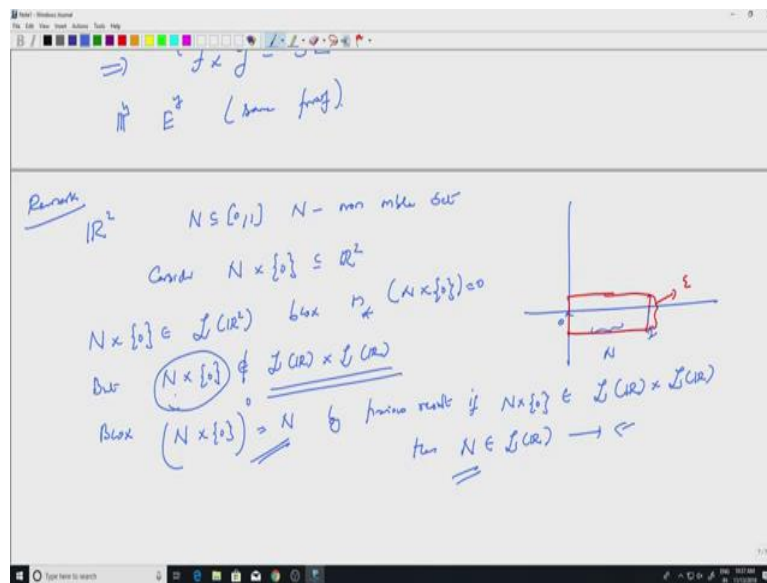 Note1 - Windows Journal
File Edit View Insert Actions Tools Help
⇒
E^y (same proof).
Remark
ℝ² N ⊆ [0,1] N - non mble set
Consider N × {0} ⊆ ℝ²
N × {0} ∈ ℒ(ℝ²) bcox m_* (N × {0}) = 0
But N × {0} ∉ ℒ(ℝ) × ℒ(ℝ)
Bcox (N × {0})^0 = N by previous result if N × {0} ∈ ℒ(ℝ) × ℒ(ℝ)
then N ∈ ℒ(ℝ) → ⇐
0 1 ε
N
Type here to search
10:37 AM